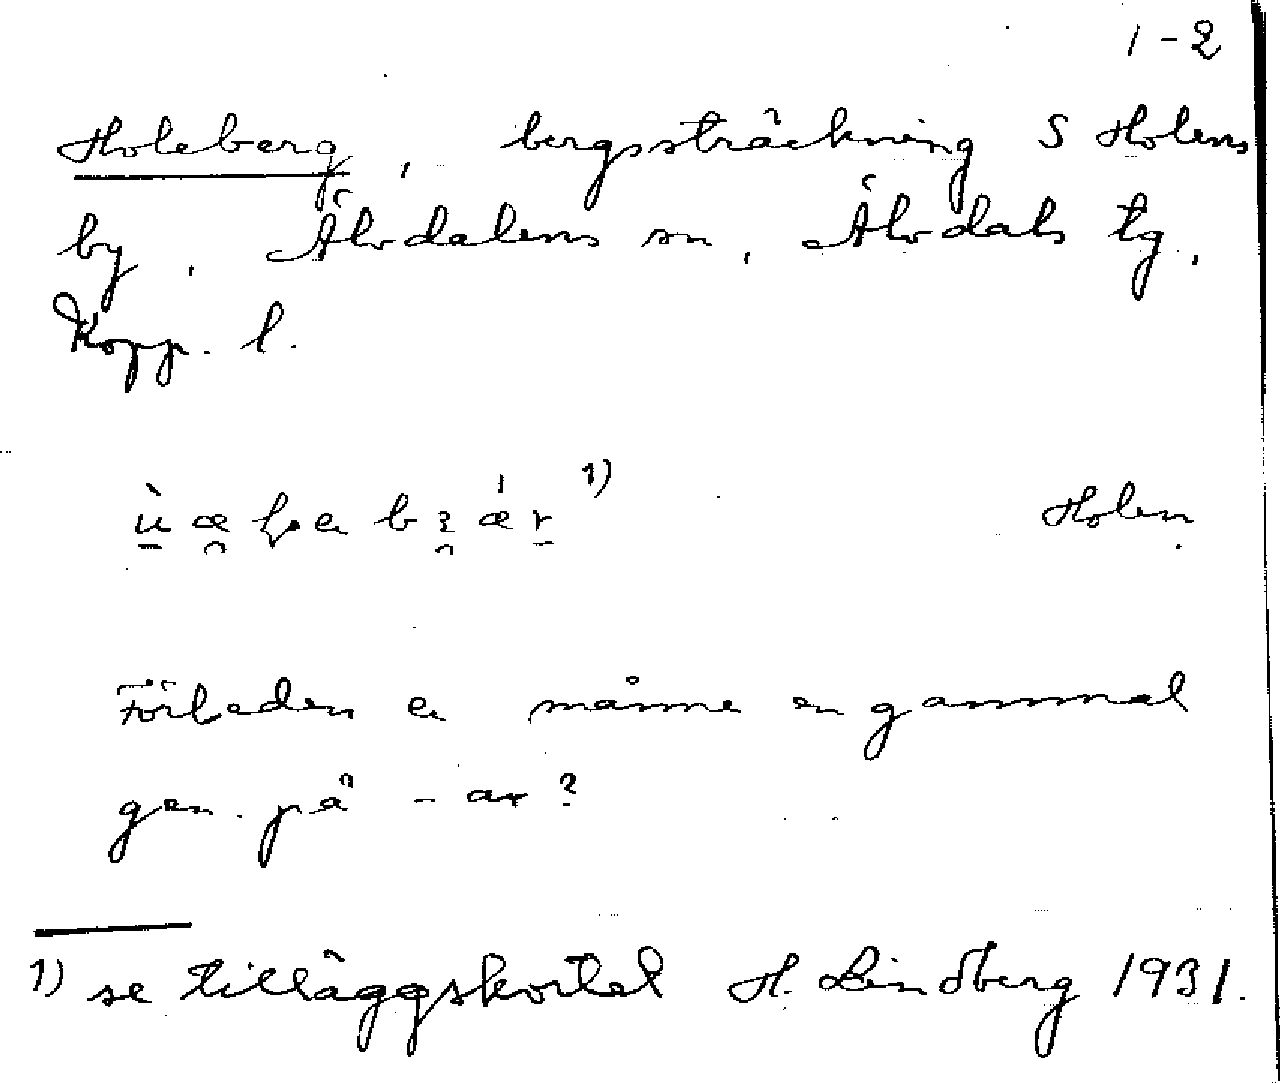 1-2
Holeberg, bergssträckning S Holens
by, Älvdalens sn, Älvdals tg,
Kopp. l.
1)
Holen
Förleden är månne en gammal
gen. på -ar?
1) se tilläggskortet H. Lindberg 1931.